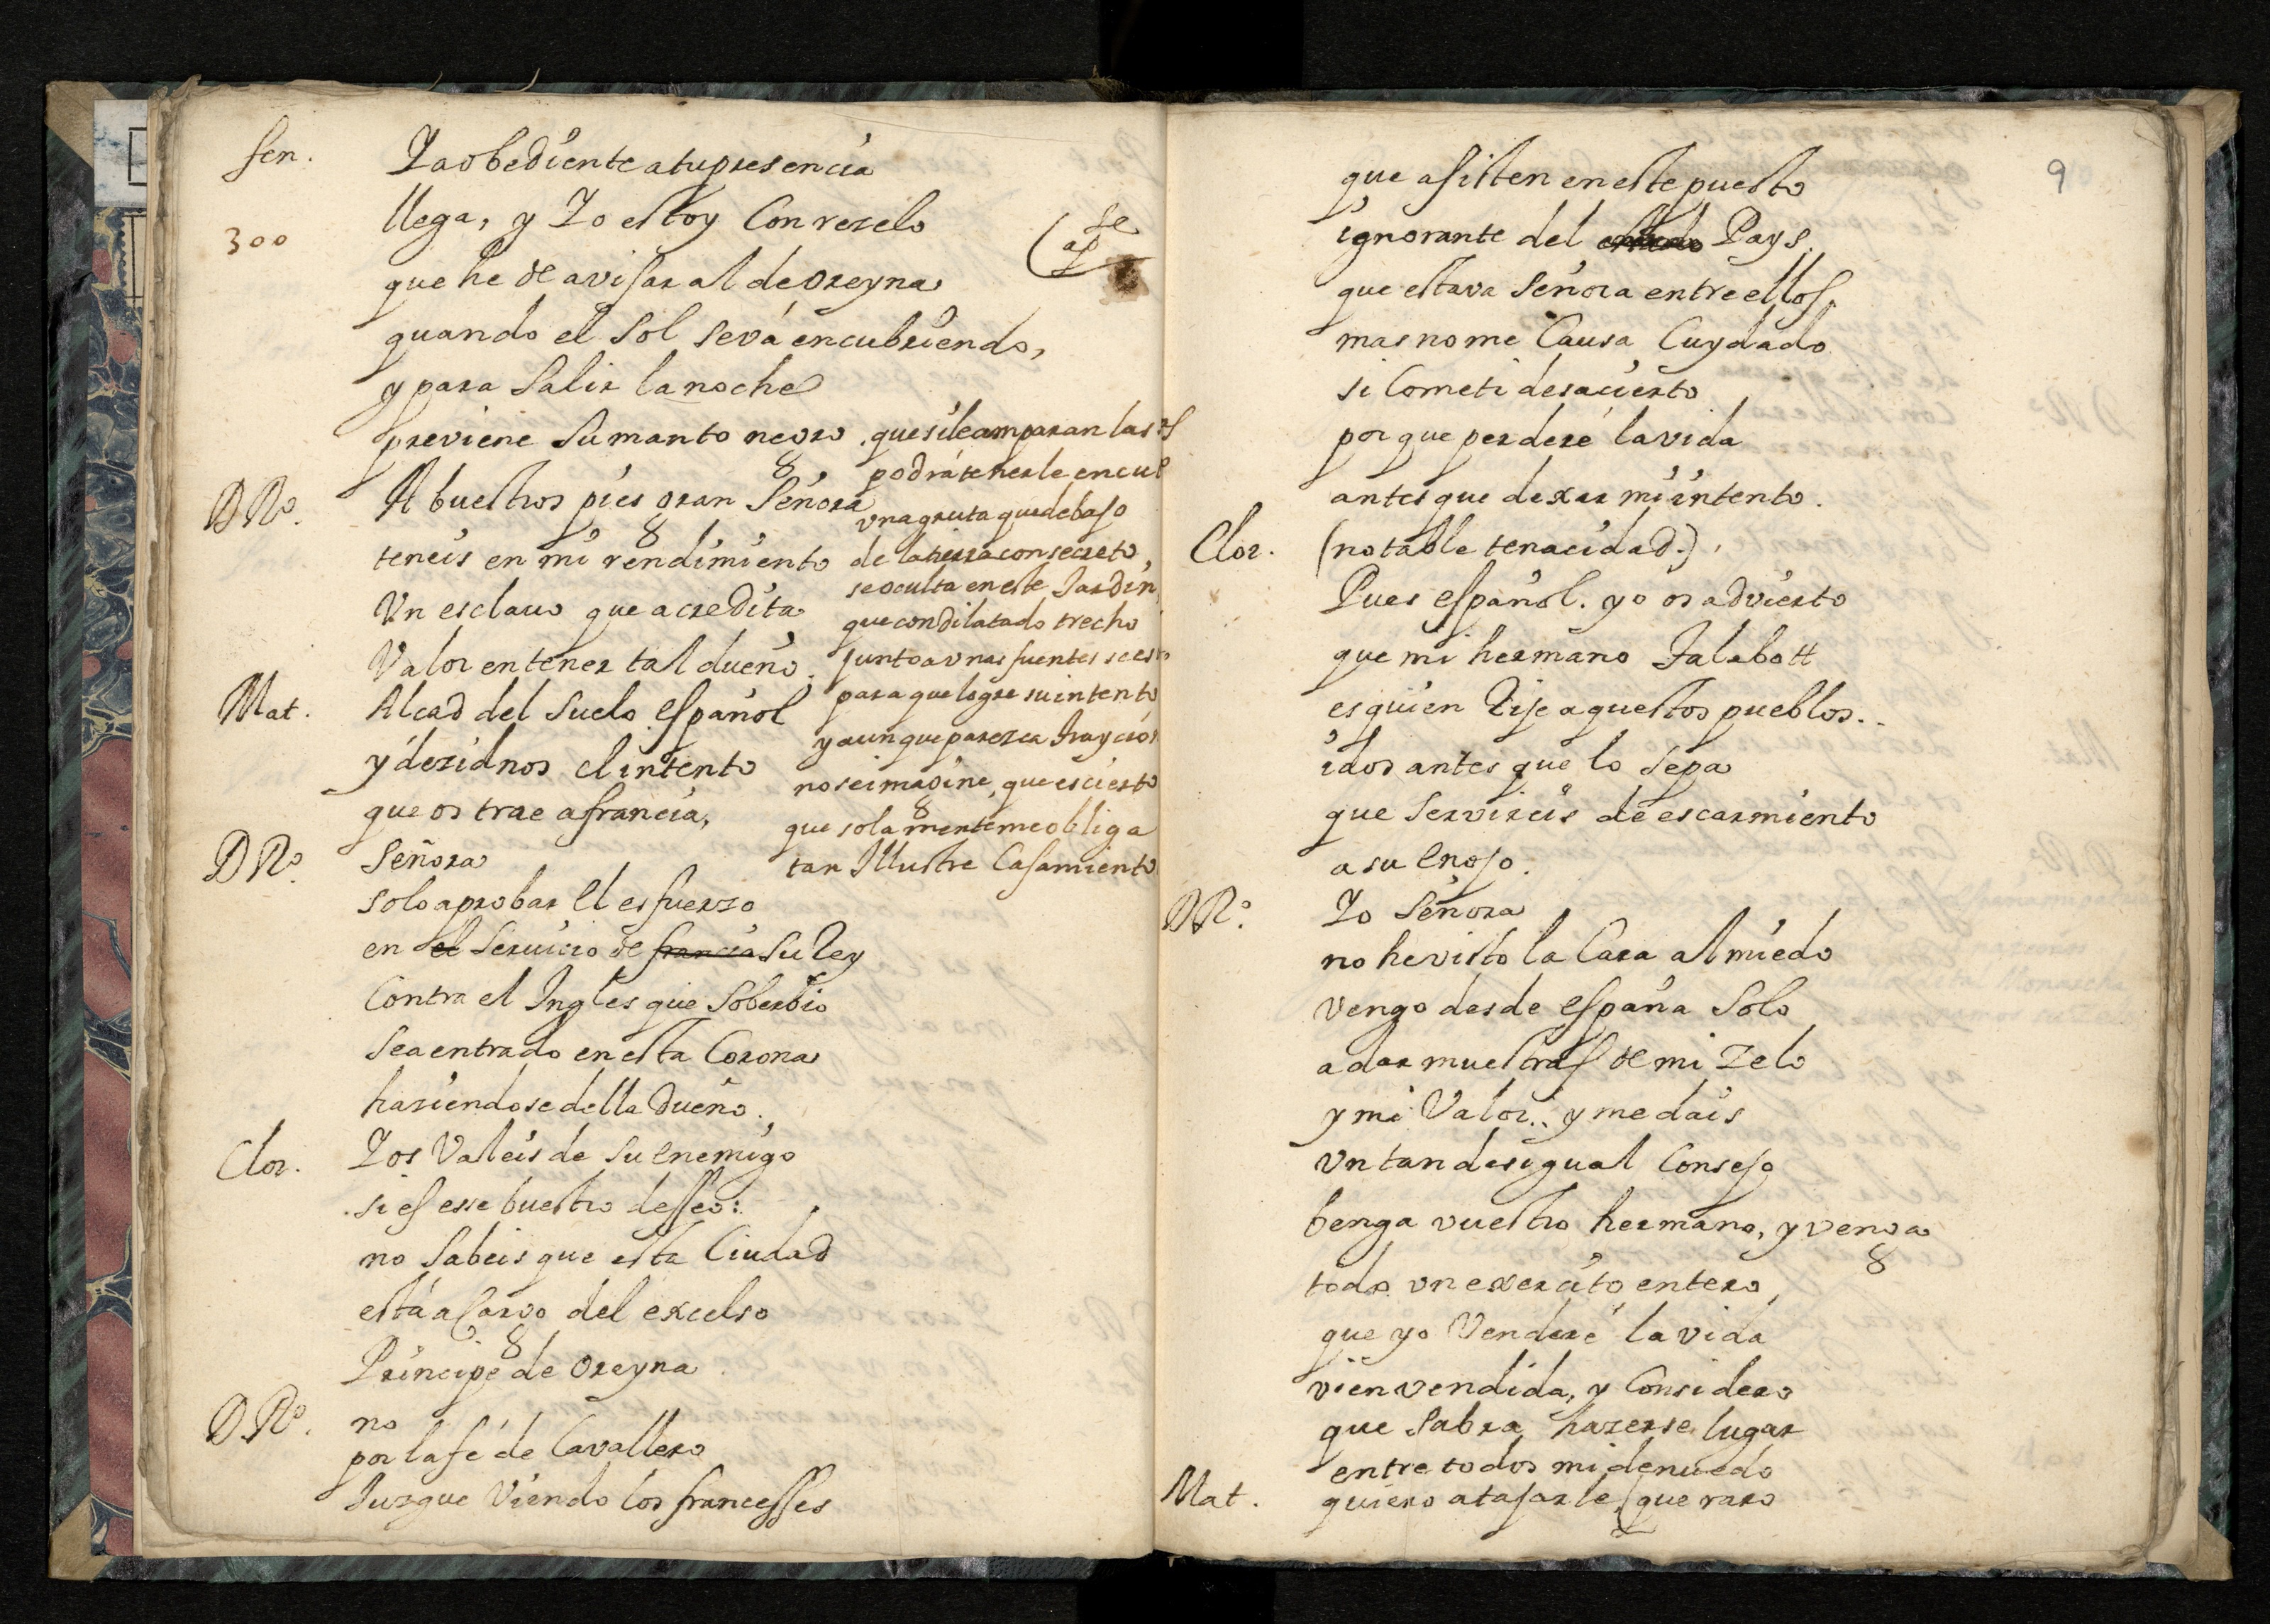 fen. Ya obediente a tu presencia
llega, y Yo estoy Con rezelo
300
que he de avisar al de oreyna
(ap se
quando el Sol se vá encubriendo,
y para Salir la noche
previene Su manto negro,
D Ro. A buestros pies gran Señora
teneis en mi rendimiento
Vn esclauo que acredita
Valor en tener tal dueño.
Mat. Alcad del Suelo español
y dezidnos el intento
que os trae a francia,
D Ro. Señora
solo a probar el esfuerzo
en el Seruicio de francia Su Rey
Contra el Ingles que Soberbio
Sea entrado en esta Corona
haziendose della Dueño.
Clor. Y os Valeis de Su enemigo
si es esse buestro desseo:
no Sabeis que esta Ciudad
está a Cargo del excelso
Principe de oreyna
D. Ro. no
por la fé de Cavallero
Juzgue Viendo los francesses
que si le amparan las
podrá tenerle encu
vna gruta que debajo
de la tierra con secreto
se oculta en este Jardin,
que con dilatado trecho
junto a vnas fuentes se es
para que logre su intento
y aunque parezca trayción
no se imagine, que es cierto
que solamente me obliga
tan Illustre Casamiento
9
que asisten en este puesto
ignorante del Pays.
que estava Señora entre ellos,
mas no me Causa Cuydado
si Cometi desacierto
por que perderé la vida
antes que dexar mi intento.
Clor. (notable tenacidad.)
Pues español. yo os advierto
que mi hermano Talabott
es quien Rije aquestos pueblos..
idos antes que lo Sepa
que Servireis de escarmiento
a su enojo.
D Ro. Yo Señora
no he visto la Cara al miedo
vengo desde españa Solo
a dar muestras de mi Zelo
y mi Valor.. y me dais
vn tan desigual Consejo
benga vuestro hermano, y venga
todo vn exercito entero,
que yo Venderé la vida
vien vendida, y Considero
que Sabra hazerse lugar
entre todos mi denuedo
Mat. quiero atajarle (que raro